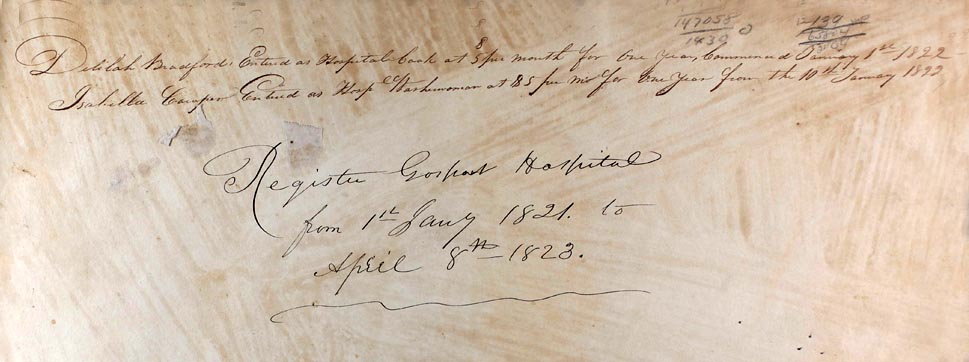 147055
1430 0
139
Delilah Bradford Entered as Hospital Cook at $5 per month for One Year, Commenced January 1st 1822
Isabella Camper Entered as Hospl Washerwoman at $5 per Mo for One Year from the 10th January 1822
Register Gosport Hospital
from 1st Jany 1821. to
April 8th 1823.